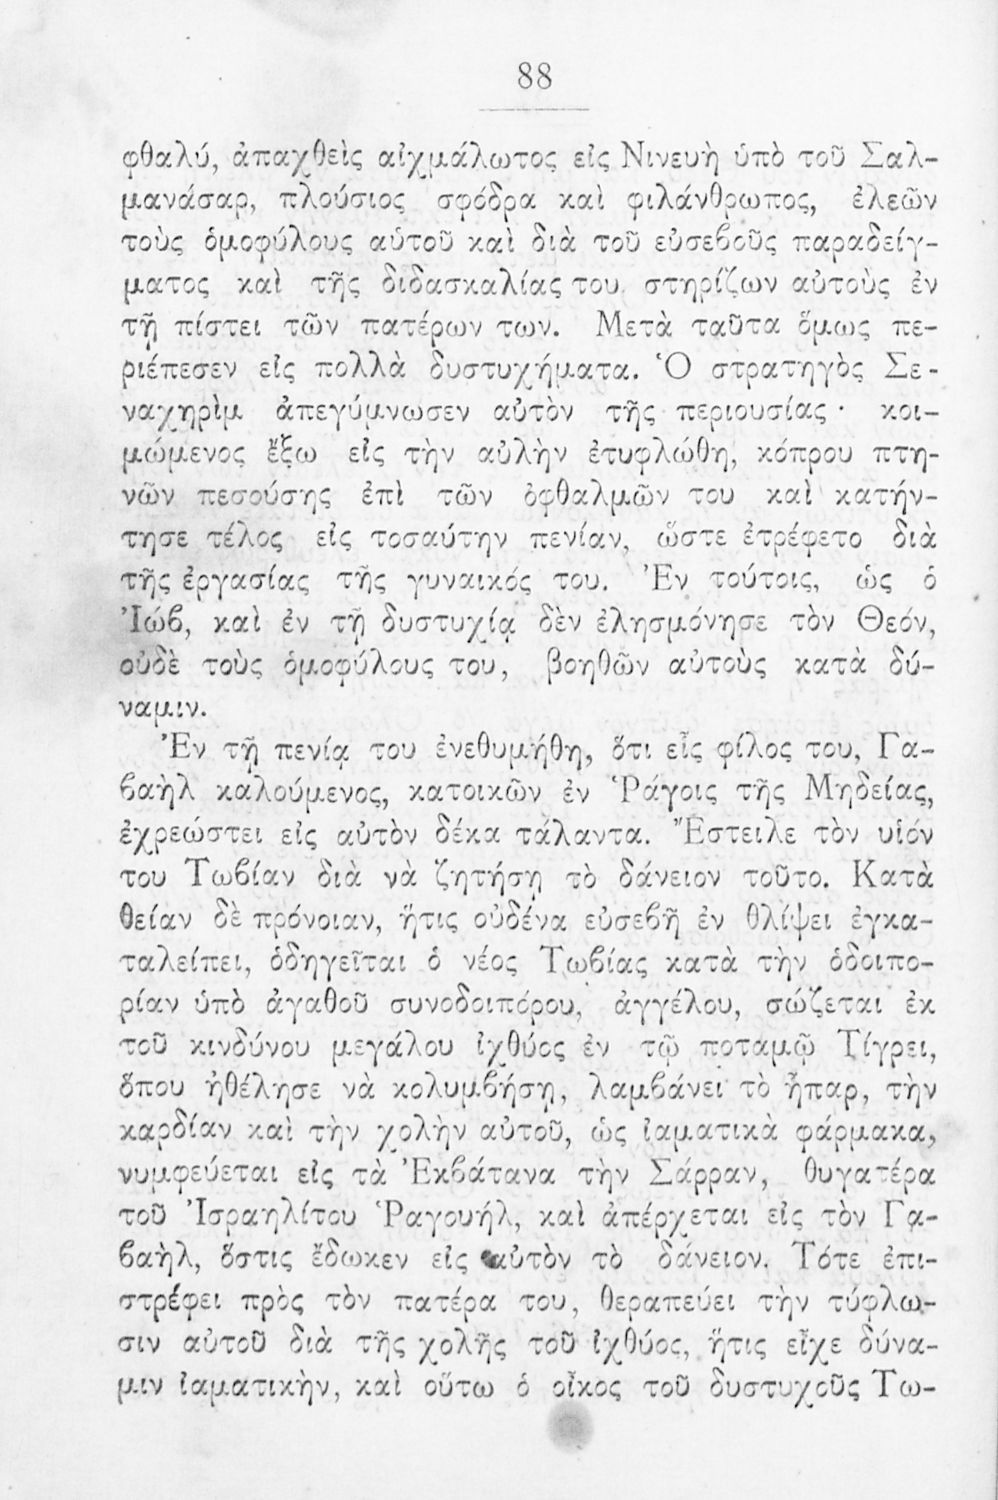 88
φθαλύ, ἀπαχθεὶς αἰχμάλωτος εἰς Νινευὴ ὑπὸ τοῦ Σαλ-
μανάσαρ, πλούσιος σφόδρα καὶ φιλάνθρωπος, ἐλεῶν
τοὺς ὁμοφύλους αὑτοῦ καὶ διὰ τοῦ εὐσεβοῦς παραδείγ-
ματος καὶ τῆς διδασκαλίας του στηρίζων αὐτοὺς ἐν
τῇ πίστει τῶν πατέρων των. Μετὰ ταῦτα ὅμως πε-
ριέπεσεν εἰς πολλὰ δυστυχήματα. Ὁ στρατηγὸς Σε-
ναχηρὶμ ἀπεγύμνωσεν αὐτὸν τῆς περιουσίας· κοι-
μώμενος ἔξω εἰς τὴν αὐλὴν ἐτυφλώθη, κόπρου πτη-
νῶν πεσούσης ἐπὶ τῶν ὀφθαλμῶν του καὶ κατήν-
τησε τέλος εἰς τοσαύτην πενίαν, ὥστε ἐτρέφετο διὰ
τῆς ἐργασίας τῆς γυναικός του. Ἐν τούτοις, ὡς ὁ
Ἰώβ, καὶ ἐν τῇ δυστυχίᾳ δὲν ἐλησμόνησε τὸν Θεόν,
οὐδὲ τοὺς ὁμοφύλους του, βοηθῶν αὐτοὺς κατὰ δύ-
ναμιν.
Ἐν τῇ πενίᾳ του ἐνεθυμήθη, ὅτι εἷς φίλος του, Γα-
βαὴλ καλούμενος, κατοικῶν ἐν Ῥάγοις τῆς Μηδείας,
ἐχρεώστει εἰς αὐτὸν δέκα τάλαντα. Ἔστειλε τὸν υἱόν
του Τωβίαν διὰ νὰ ζητήσῃ τὸ δάνειον τοῦτο. Κατὰ
θείαν δὲ πρόνοιαν, ἥτις οὐδένα εὐσεβῆ ἐν θλίψει ἐγκα-
ταλείπει, ὁδηγεῖται ὁ νέος Τωβίας κατὰ τὴν ὁδοιπο-
ρίαν ὑπὸ ἀγαθοῦ συνοδοιπόρου, ἀγγέλου, σώζεται ἐκ
τοῦ κινδύνου μεγάλου ἰχθύος ἐν τῷ ποταμῷ Τίγρει,
ὅπου ἠθέλησε νὰ κολυμβήσῃ, λαμβάνει τὸ ἧπαρ, τὴν
καρδίαν καὶ τὴν χολὴν αὐτοῦ, ὡς ἰαματικὰ φάρμακα,
νυμφεύεται εἰς τὰ Ἐκβάτανα τὴν Σάρραν, θυγατέρα
τοῦ Ἰσραηλίτου Ῥαγουήλ, καὶ ἀπέρχεται εἰς τὸν Γα-
βαὴλ, ὅστις ἔδωκεν εἰς αὐτὸν τὸ δάνειον. Τότε ἐπι-
στρέφει πρὸς τὸν πατέρα του, θεραπεύει τὴν τύφλω-
σιν αὐτοῦ διὰ τῆς χολῆς τοῦ ἰχθύος, ἥτις εἶχε δύνα-
μιν ἰαματικὴν, καὶ οὕτω ὁ οἶκος τοῦ δυστυχοῦς Τω-